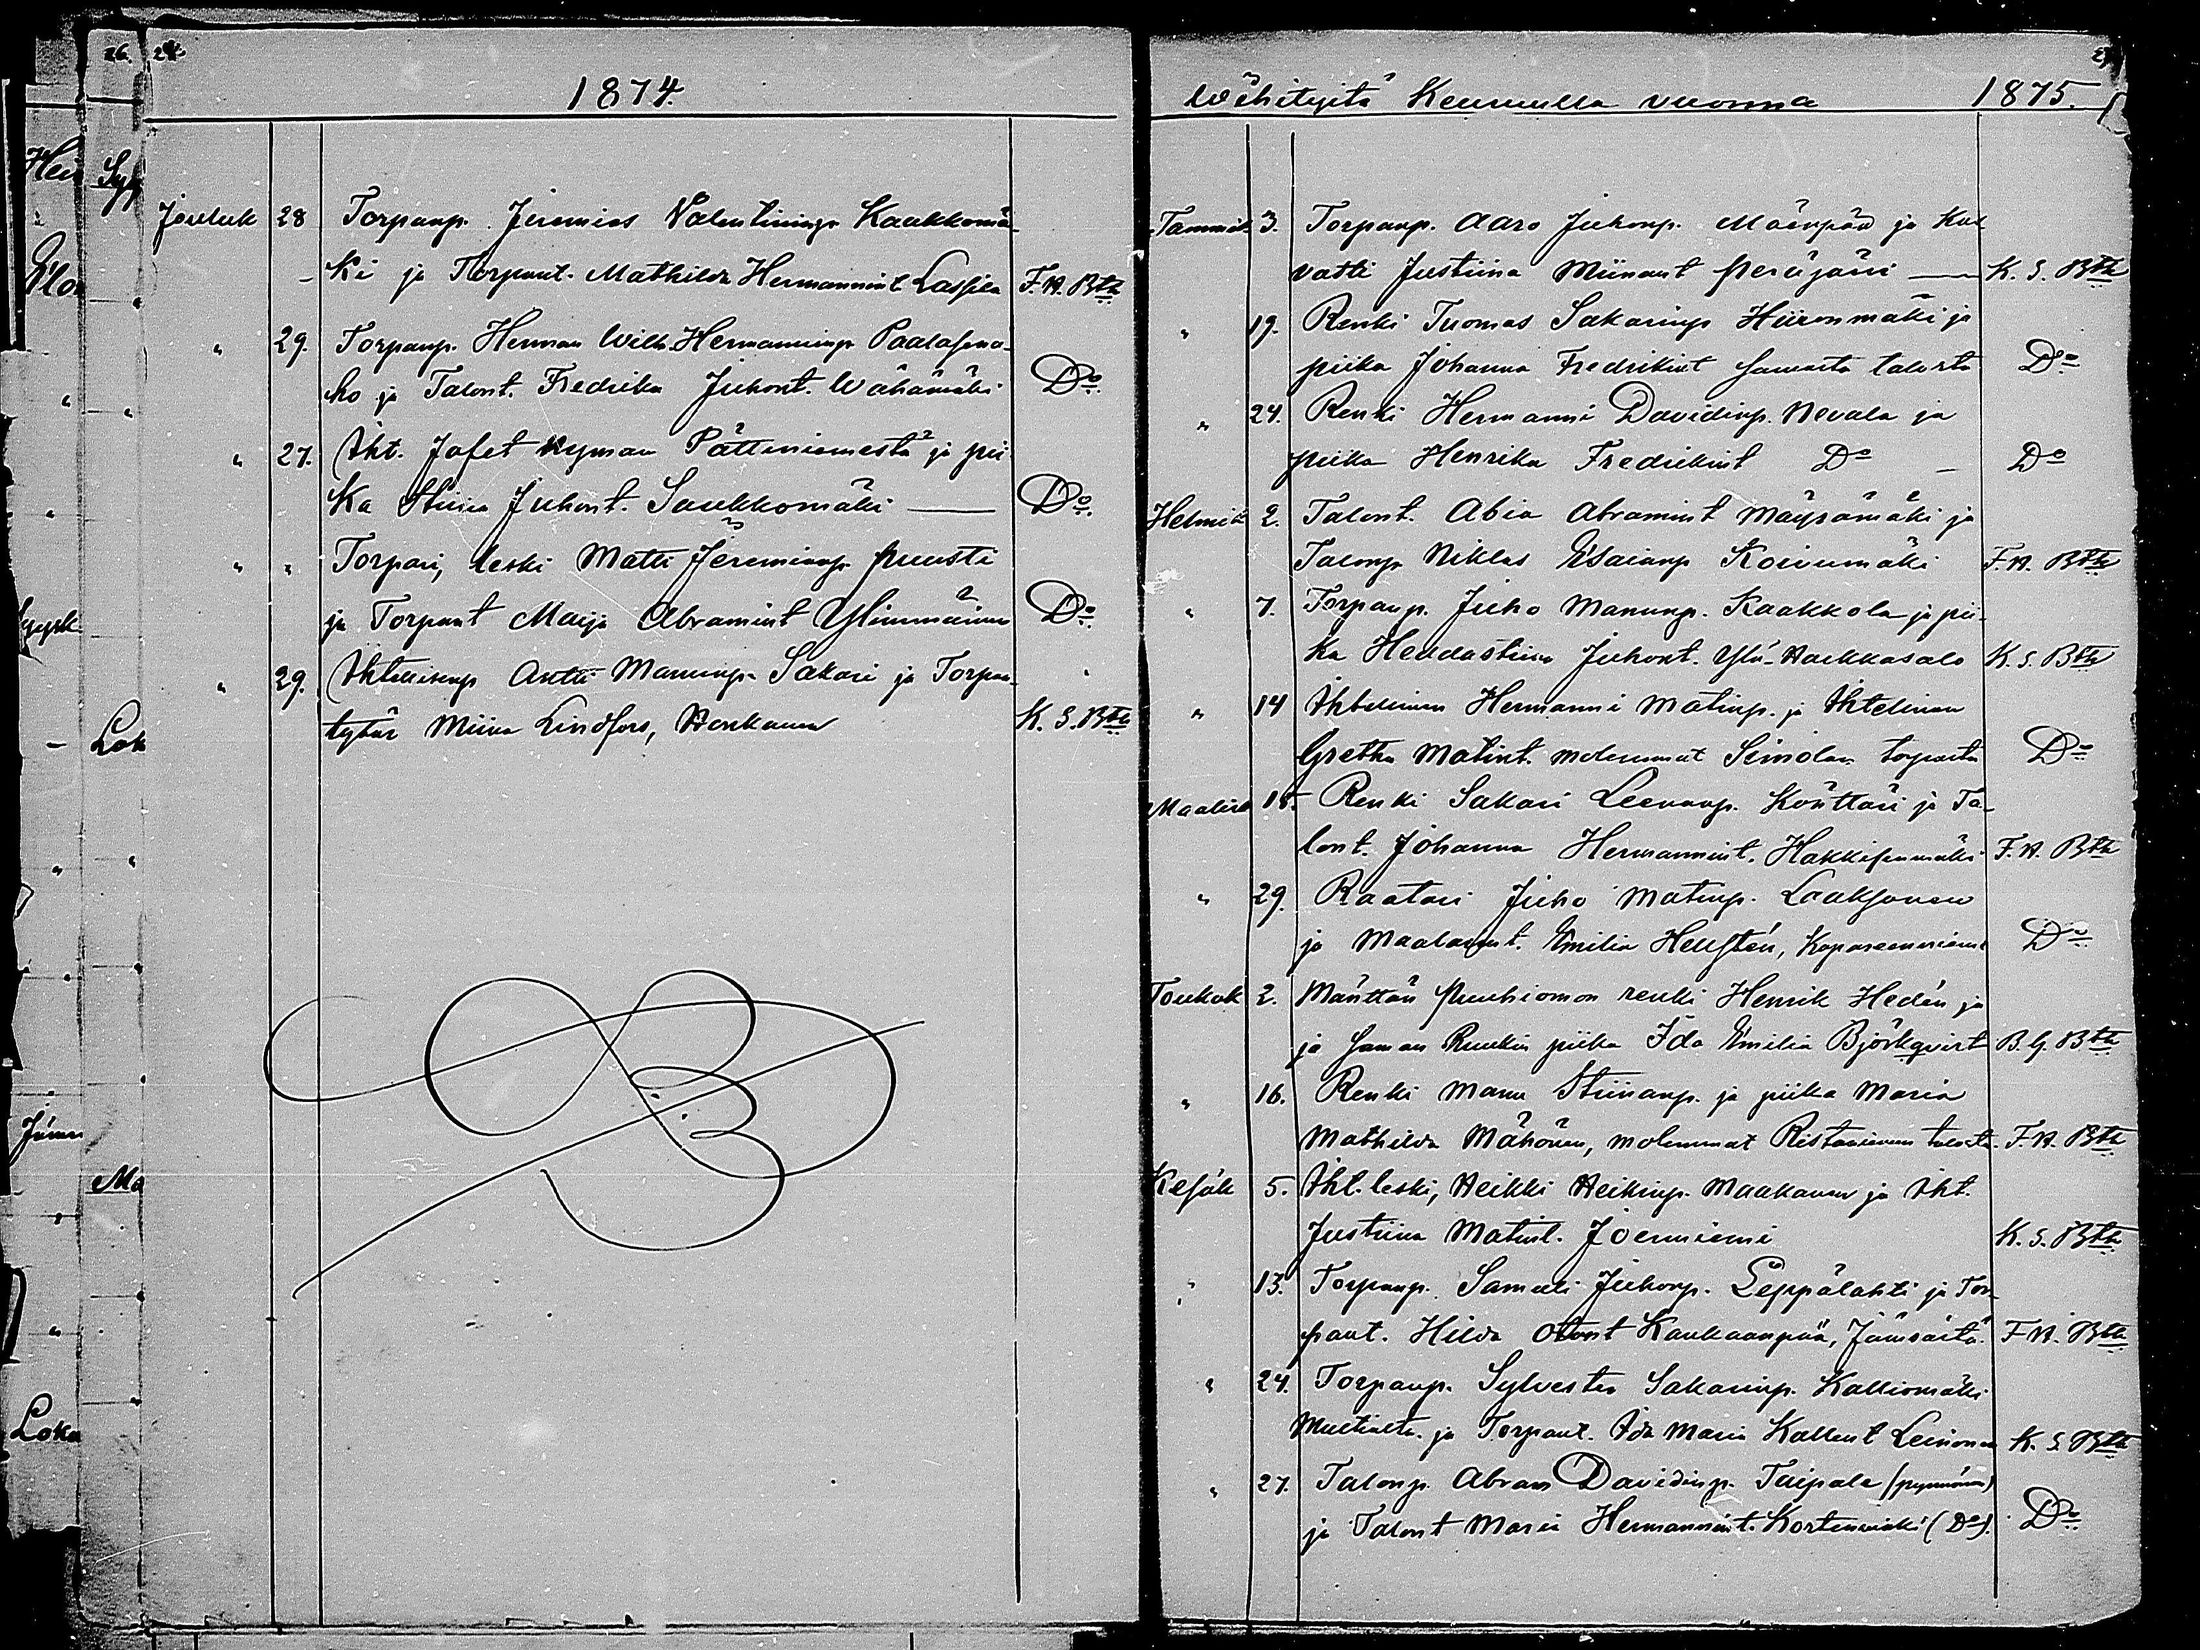 1874.
Jouluk 28 Torpanp. Jeremias Valentininp. Kaukkomä-
ki ja Torpant. Mathilda Hermannint. Lassila F.H. Bth
" 29. Torpanp. Herman Wilh. Hermanninp. Paalasma-
ho ja Talont. Fredrika Juhont. Wähämäki Do.
" 27. Iht. Jafet Nyman Pättiniemestä ja pii-
ka Stiina Juhont. Saukkomäki — Do.
" " Torpari, leski Matti Jeremianp. Puusti
ja Torpant Maija Abramint Ylimmäinen Do.
" 29. Ihtellisenp Antti Manunp. Sakari ja Torpan-
tytär Miina Lindfors, Honkanen K. S. Bth
Wihityitä Keuruulla vuonna 1875.
Tammik 3. Torpanp. Aaro Juhonp. Mäenpää ja
vatti Justiina Miinant Peräjärvi — K. S. Bth
" 19. Renki Tuomas Sakarinp Hiironmäki ja
piika Johanna Fredrikint samasta talosta Do
" 24. Renki Hermanni Davidinp. Nevala ja
piika Henrika Fredrikint Do — Do
Helmik 2. Talont. Abia Abramint Mäyrämäki ja
Talonp. Niklas Esaianp Koivumäki F.H. Bth
" 7. Torpanp. Juho Manunp. Kaakkola ja pii-
ka Heddastiina Juhont. Ylä-Haukkasalo K. S. Bth
" 14 Ihtellinen Hermanni Matinp. ja Ihtellinen
Gretha Matint. molemmat Simolan torpasta Do
Maalisk 18. Renki Sakari Leenanp. Könttäri ja Ta-
lont. Johanna Hermannint. Hakkisenmäki F.H. Bth
" 29. Raatari Juho Matinp. Laaksonen
ja Maalarint. Emilia Hellstén, Kapareenniemi Do
Toukok 2. Mäntän Puuhiomon renki Henrik Hedén ja
ja saman Ruukin piika Ida Emilia Björkqvist B. G. Bth
" 16. Renki Manu Stiinanp. ja piika Maria
Mathilda Mähönen, molemmat Ristaniemen talosta F.H. Bth
Kesäk 5. Iht. leski, Heikki Heikinp. Maakanen ja Iht.
Justiina Matint. Joenniemi K. S. Bth
" 13. Torpanp. Samuli Juhonp. Leppälahti ja Tor-
pant. Hilda Otont Kaukaanpää, Jämsästä F.H. Bth
" 24. Torpanp. Sylvester Sakarinp. Kalliomäki
Multialta ja Torpant. Ida Maria Kallent Leinonen K. S. Bth
" 27. Talonp. Abram Davidinp. Taipale
ja Talont Maria Hermannint. Kortesmäki (Do). Do